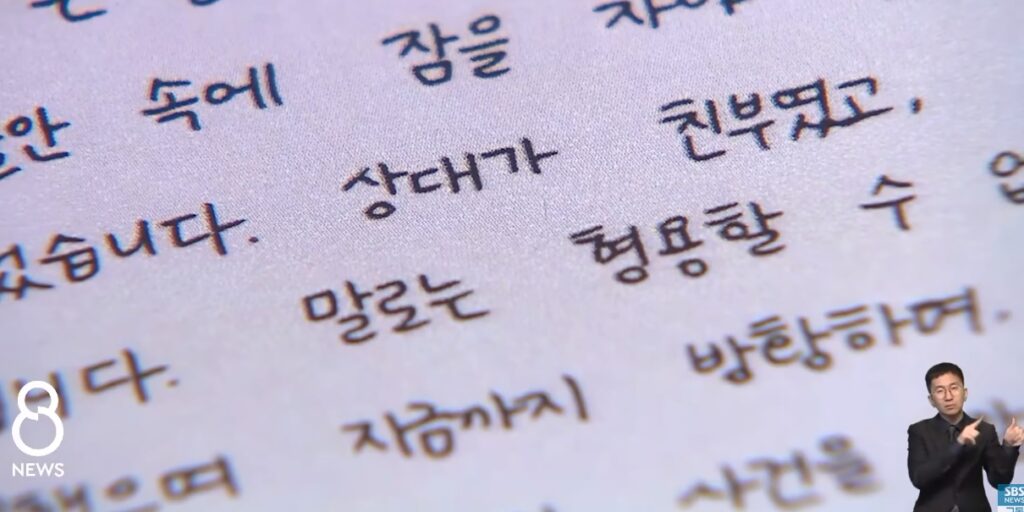 속에 잠을
상대가 친부였고,
습니다.
말로는 형용할 수
니다.
지금까지 방황하며.
사건을
8
NEWS
SBS
NEWS